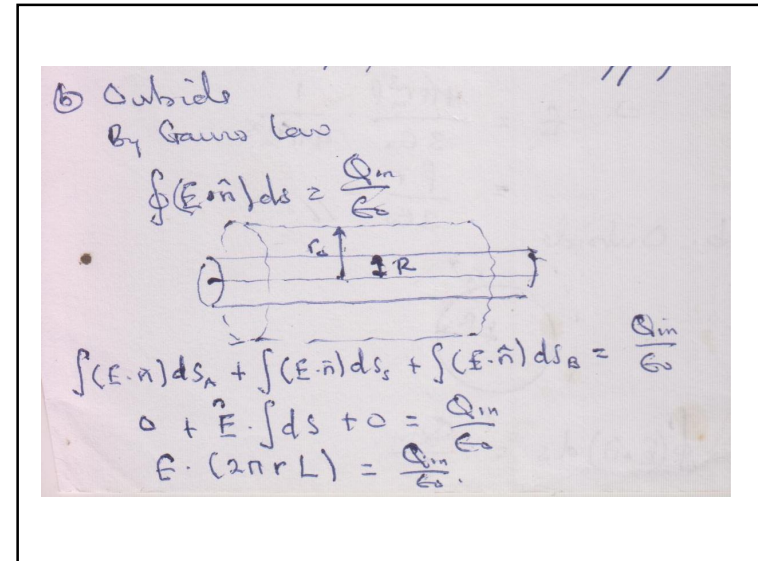 ⓑ Outside
By Gauss Law
∮(E·n̂)ds = Qin/ε₀
r₀
R
∫(E·n̂)dS_A + ∫(E·n̂)dS_s + ∫(E·n̂)dS_B = Qin/ε₀
0 + Ê·∫ds + 0 = Qin/ε₀
E·(2πrL) = Qin/ε₀.